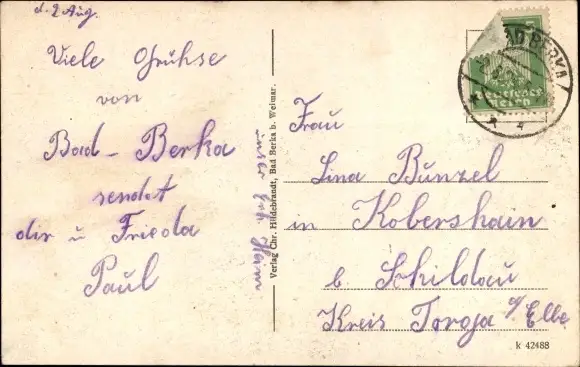 d. 2 Aug.
Viele Grühse
von
Bad-Berka
sendet
dir u Frieda
Paul
Verlag Chr. Hildebrandt, Bad Berka b. Weimar.
BAD BERKA
5
Deutsches
Reich
Frau
Lina Bunzel
in Kobershain
b Schildau
Kreis Torga a/Elbe
k 42488